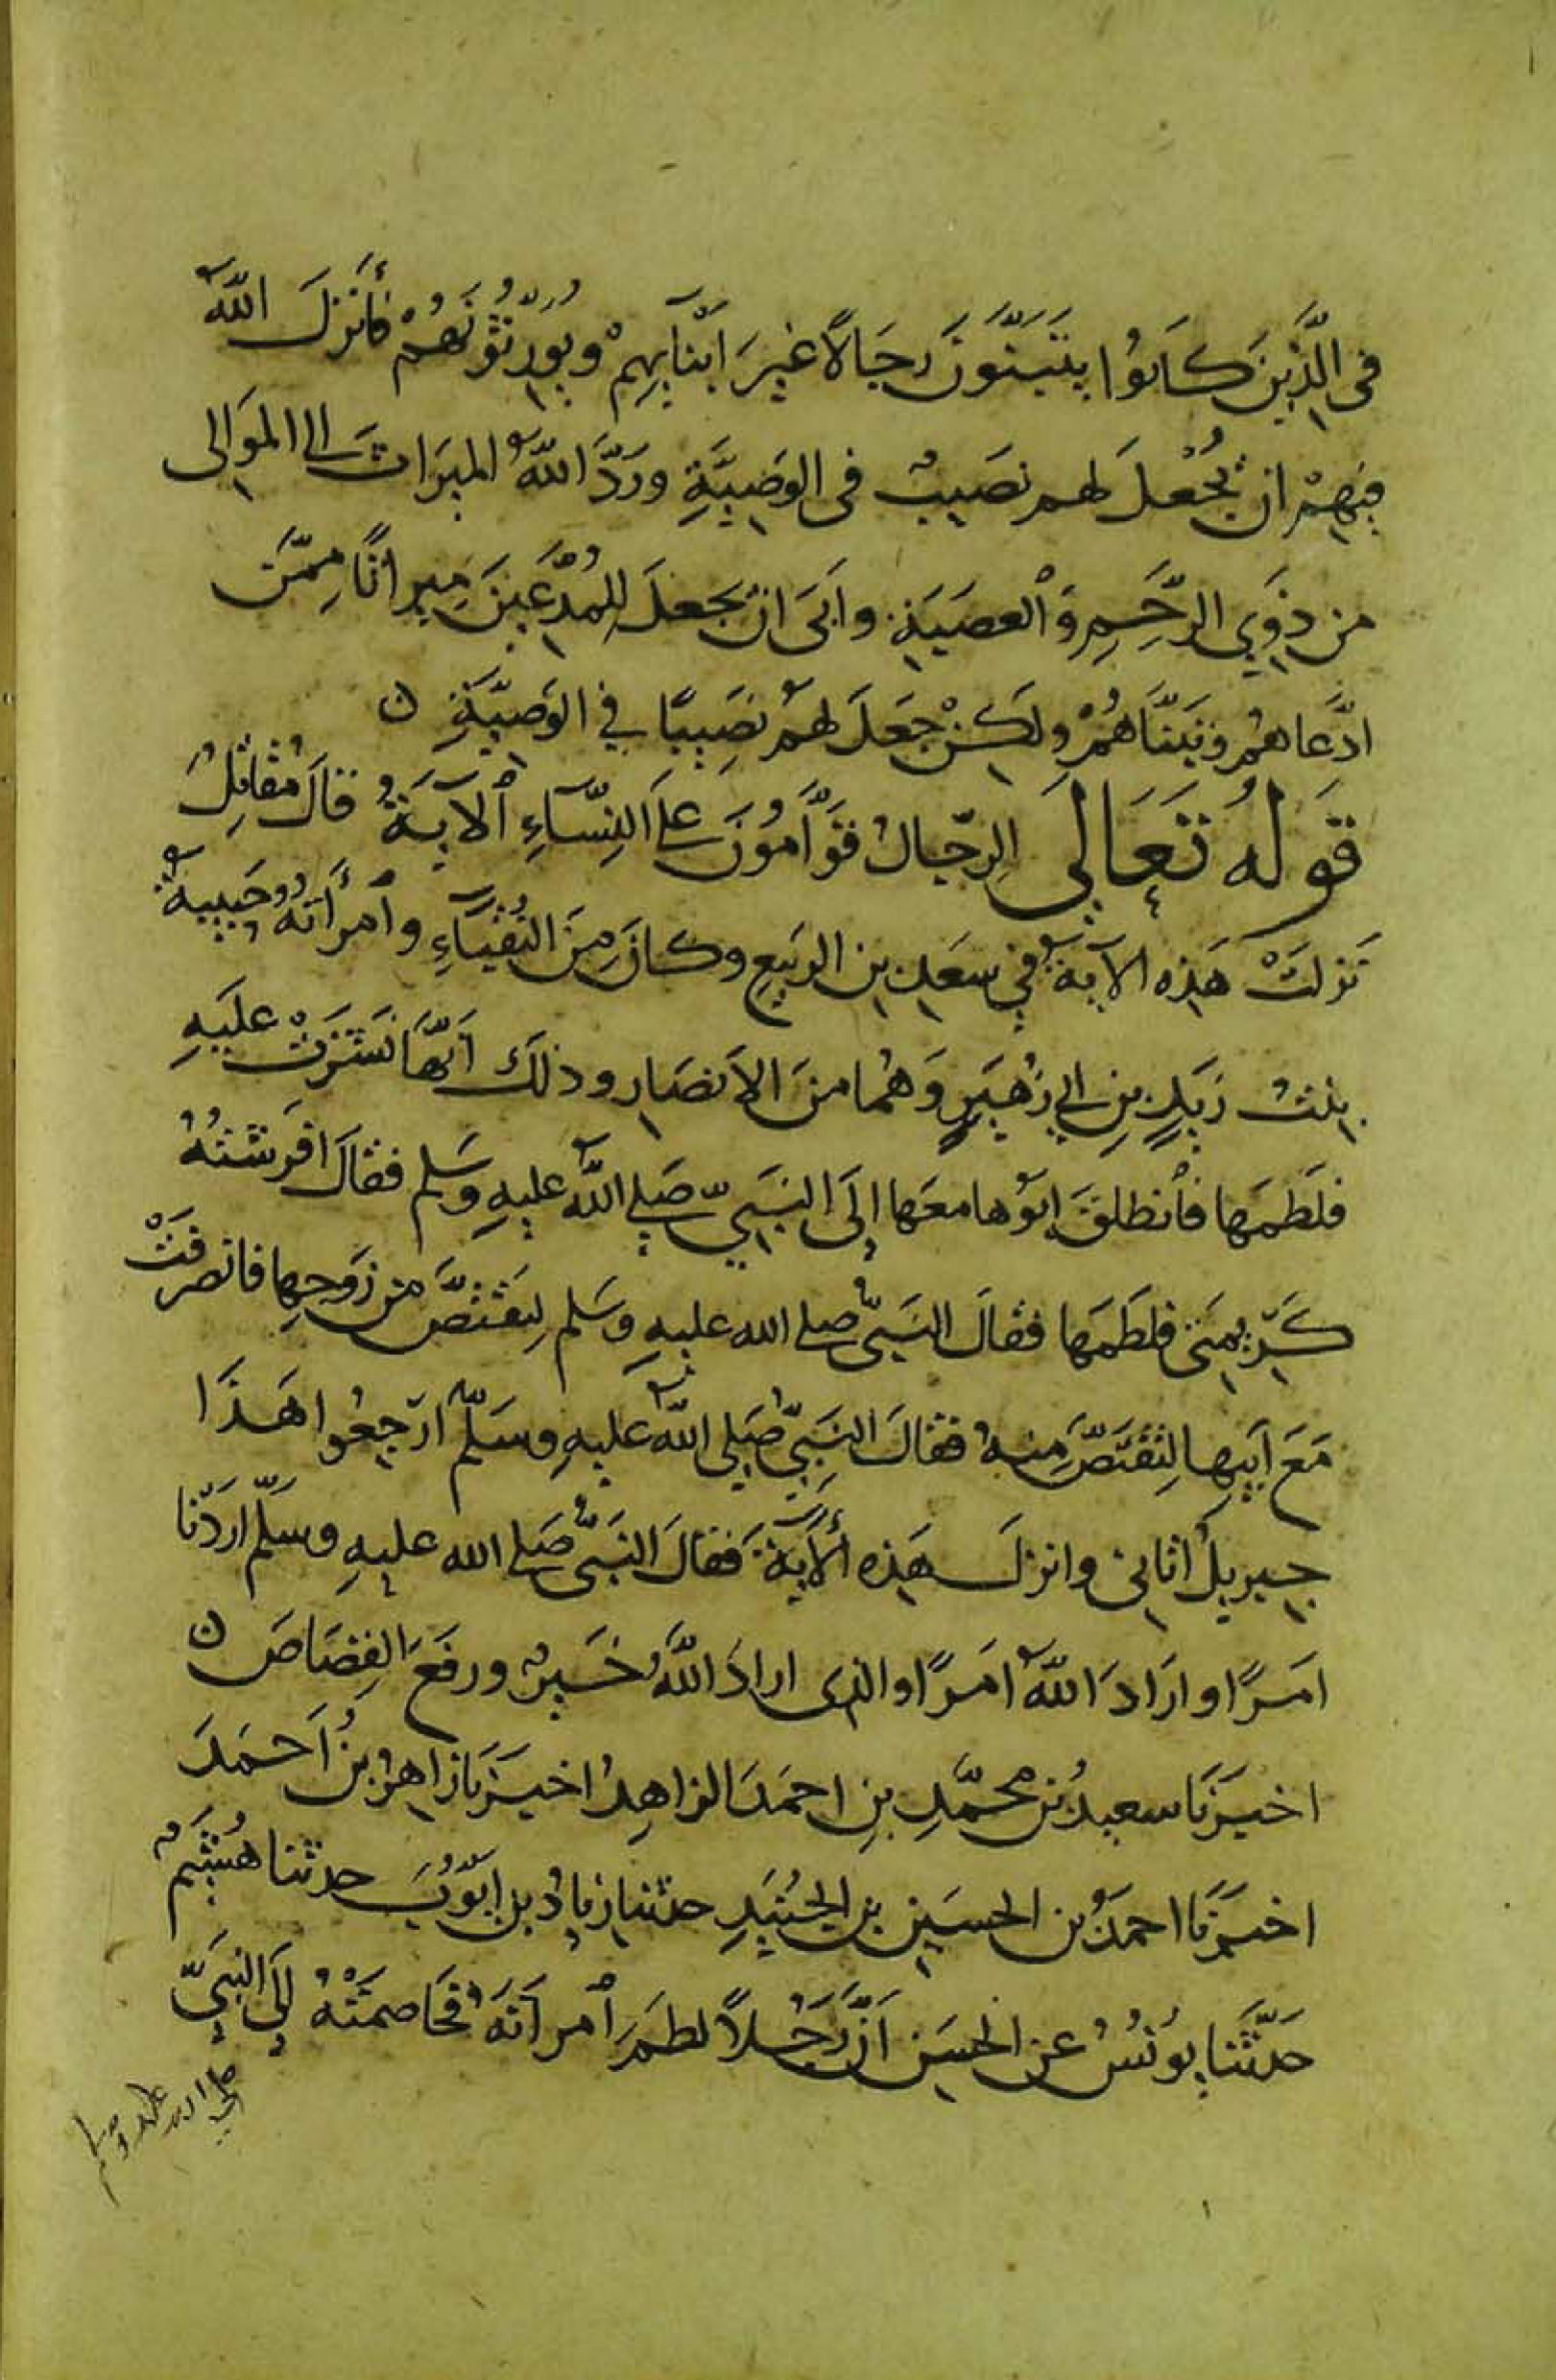 في الَّذِينَ كَانُوا يَتَبَنَّوْنَ رِجَالًا غَيرَ أَبْنَآئِهِمْ وَيُوَرِّثُونَهُمْ فَأَنْزَلَ اللَّهُ
فِيهِمْ ان يُجْعَلَ لهم نَصِيبٌ فى الوَصِيَّةِ وَرَدَّ اللَّهُ الميرَاثَ الى المَوَالى
من ذَوِي الرَّحِمِ وَالعَصَبَةِ وَأَبَى ان يجعَلَ لِلمُدَّعَينَ مِيراثًا مِمَّن
ادَّعَاهُم وتَبَنَّاهُمْ ولكِنْ جَعَلَ لهُم نَصِيبًا في الوَصِيَّةِ ن
قَولُهُ تَعَالَى الرِّجَالُ قَوَّامُونَ عَلَى النِّسَآءِ الآيَةُ قَالَ مُقَاتِلُ
نَزَلَتْ هَذِه الآيَةُ في سَعْدِ بنِ الرَبِيعِ وكانَ مِنَ النُقَبَآءِ وامرَأَتُهُ حَبِيبَةُ
بِنتُ زَيدِ بنِ ابي زُهَيرٍ وَهُما منَ الأَنصَارِ وذلكَ أَنَّهَا نَشَزَتْ عَلَيهِ
فلَطَمَها فانطلقَ ابوُها معَها إِلَى النَبِيِّ صَلى اللَّهُ عليهِ وسَلم فقالَ افرَشتُهُ
كَرِيمَتى فلَطَمَها فقالَ النَبِيُّ صلى الله عليهِ وسَلم لِتَقتَصَّ من زَوجِها فانصرفَتْ
مَعَ أَبِيها لِتقتَصَّ مِنهُ فقالَ النَبِيُّ صَلى اللَّهُ عليهِ وسَلَّم ارجِعُوا هَذَا
جِبرِيلُ اتانى وانزلَ هَذِه الآيَةَ فَقَالَ النَبِيُّ صَلى الله عليهِ وسَلَّم ارَدْنا
امَرًا وارَادَ اللَّهُ امَرًا والذى ارادَ اللَّهُ خَيرٌ ورفَعَ القِصَاصَ ن
اخبَرَنَا سعيدُ بن محمَّدِ بنِ احمَدَ الزاهِدُ اخبَرَنا زاهِرُ بنُ أَحمَدَ
اخبَرَنَا احمَدُ بن الحسَينِ بنِ الجُنَيدِ حدثنا زيادُ بن ايُّوبَ حدثنا هُشَيمٌ
حَدَّثَنا يونُسُ عن الحسَنِ أَنَّ رَجُلاً لطمَ امرأَتَهُ فخَاصمَتْهُ إِلَى النبيِّ
صلى الله عليه وسلم